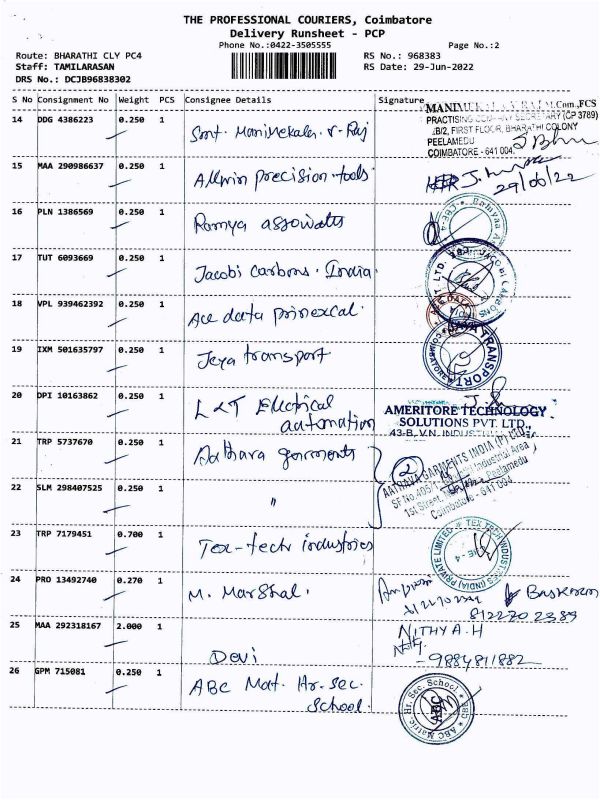 THE PROFESSIONAL COURIERS, Coimbatore
Delivery Runsheet - PCP
Phone No.:0422-3505555
Page No.:2
Route: BHARATHI CLY PC4
RS No.: 968383
Staff: TAMILARASAN
RS Date: 29-Jun-2022
DRS No.: DCJB96838302
S No Consignment No Weight PCS Consignee Details Signature
14 DDG 4386223 0.250 1 Smt. Manimekalai. v. Raj
PRACTISING COMPANY SECRETARY (CP 3789)
B/2, FIRST FLOOR, BHARATHI COLONY
PEELAMEDU
COIMBATORE - 641 004.
15 MAA 290986637 0.250 1 Allwin precision tools
29/06/22
16 PLN 1386569 0.250 1 Ramya assowatts
17 TUT 6093669 0.250 1 Jacobi Carbons. India.
18 VPL 939462392 0.250 1 Ace data prinexcal.
19 IXM 501635797 0.250 1 Jeya transport
20 DPI 10163862 0.250 1 L&T Electrical
automation
AMERITORE TECHNOLOGY
SOLUTIONS PVT. LTD.,
21 TRP 5737670 0.250 1 Aathava garments
2
AATHAVA GARMENTS INDIA (P) LTD.,
Industrial Area
1st Street, Peelamedu
Coimbatore - 641 004
22 SLM 298407525 0.250 1 "
23 TRP 7179451 0.700 1 Tex-tech industries
TEX TECH INDUSTRIES (INDIA) PRIVATE LIMITED
24 PRO 13492740 0.270 1 M. Marshal.
Baskaran
812270 2389
25 MAA 292318167 2.000 1 Devi
NITHYA.H
- 9884811882
26 GPM 715081 0.250 1 ABC Mat. Hr. Sec.
School.
ABC Matric. Hr. Sec. School
ABC